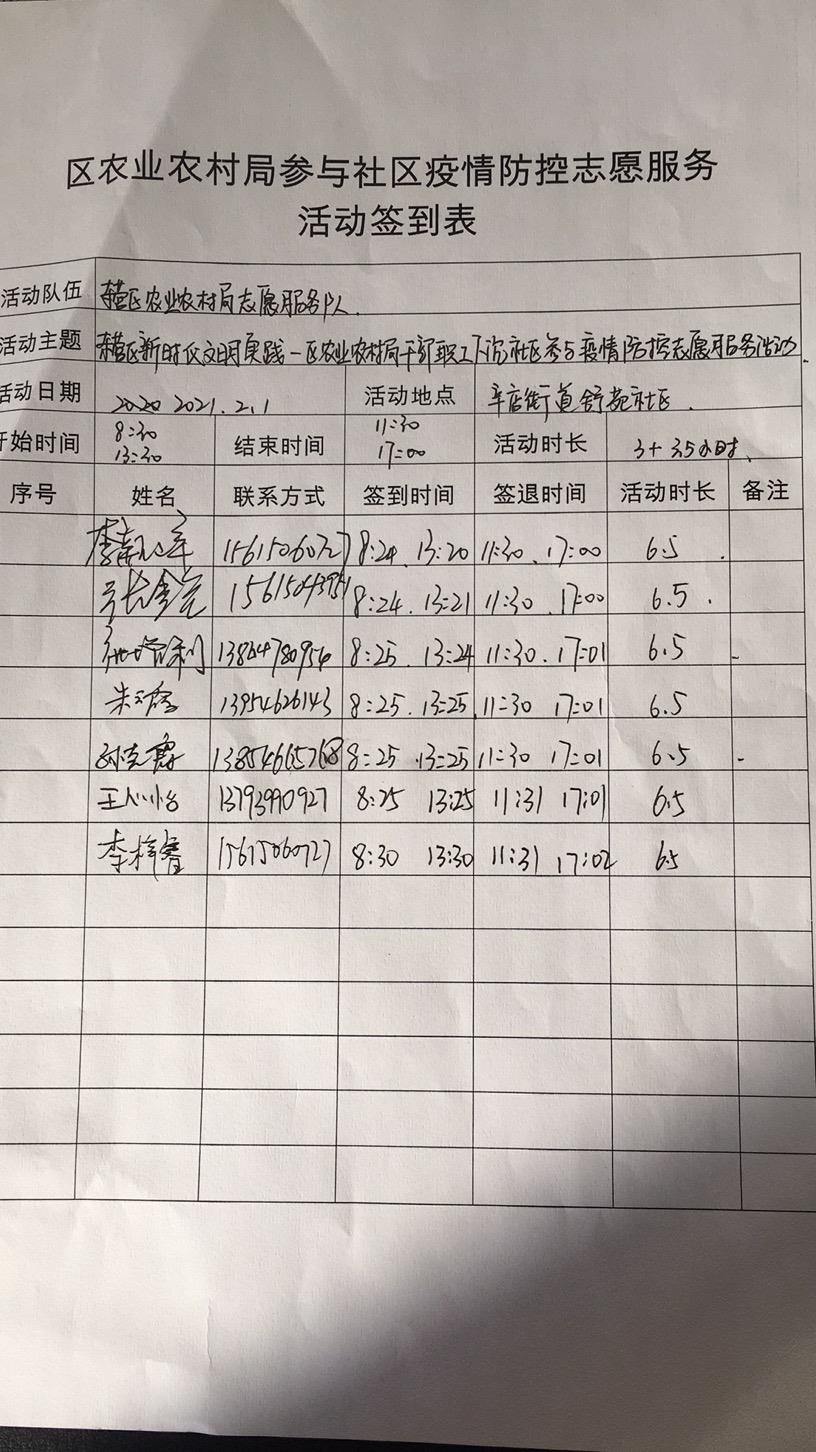 区农业农村局参与社区疫情防控志愿服务
活动签到表
活动队伍 区农业农村局志愿服务队.
活动主题 区新时代文明实践-区农业农村局干部职工下沉社区参与疫情防控志愿服务活动.
活动日期 2021.2.1 活动地点 辛店街道舒苑社区.
开始时间 8:30 13:30 结束时间 11:30 17:00 活动时长 3+3.5小时.
序号 姓名 联系方式 签到时间 签退时间 活动时长 备注
15615060727 8:24. 13:20 11:30. 17:00 6.5
8:24. 13:21 11:30. 17:00 6.5
13864780954 8:25 13:24 11:30. 17:01 6.5
13954626143 8:25. 13:25 11:30 17:01 6.5
8:25 13:25 11:30 17:01 6.5
王心怡 13793990927 8:25 13:25 11:31 17:01 6.5
李梓睿 15615060727 8:30 13:30 11:31 17:02 6.5